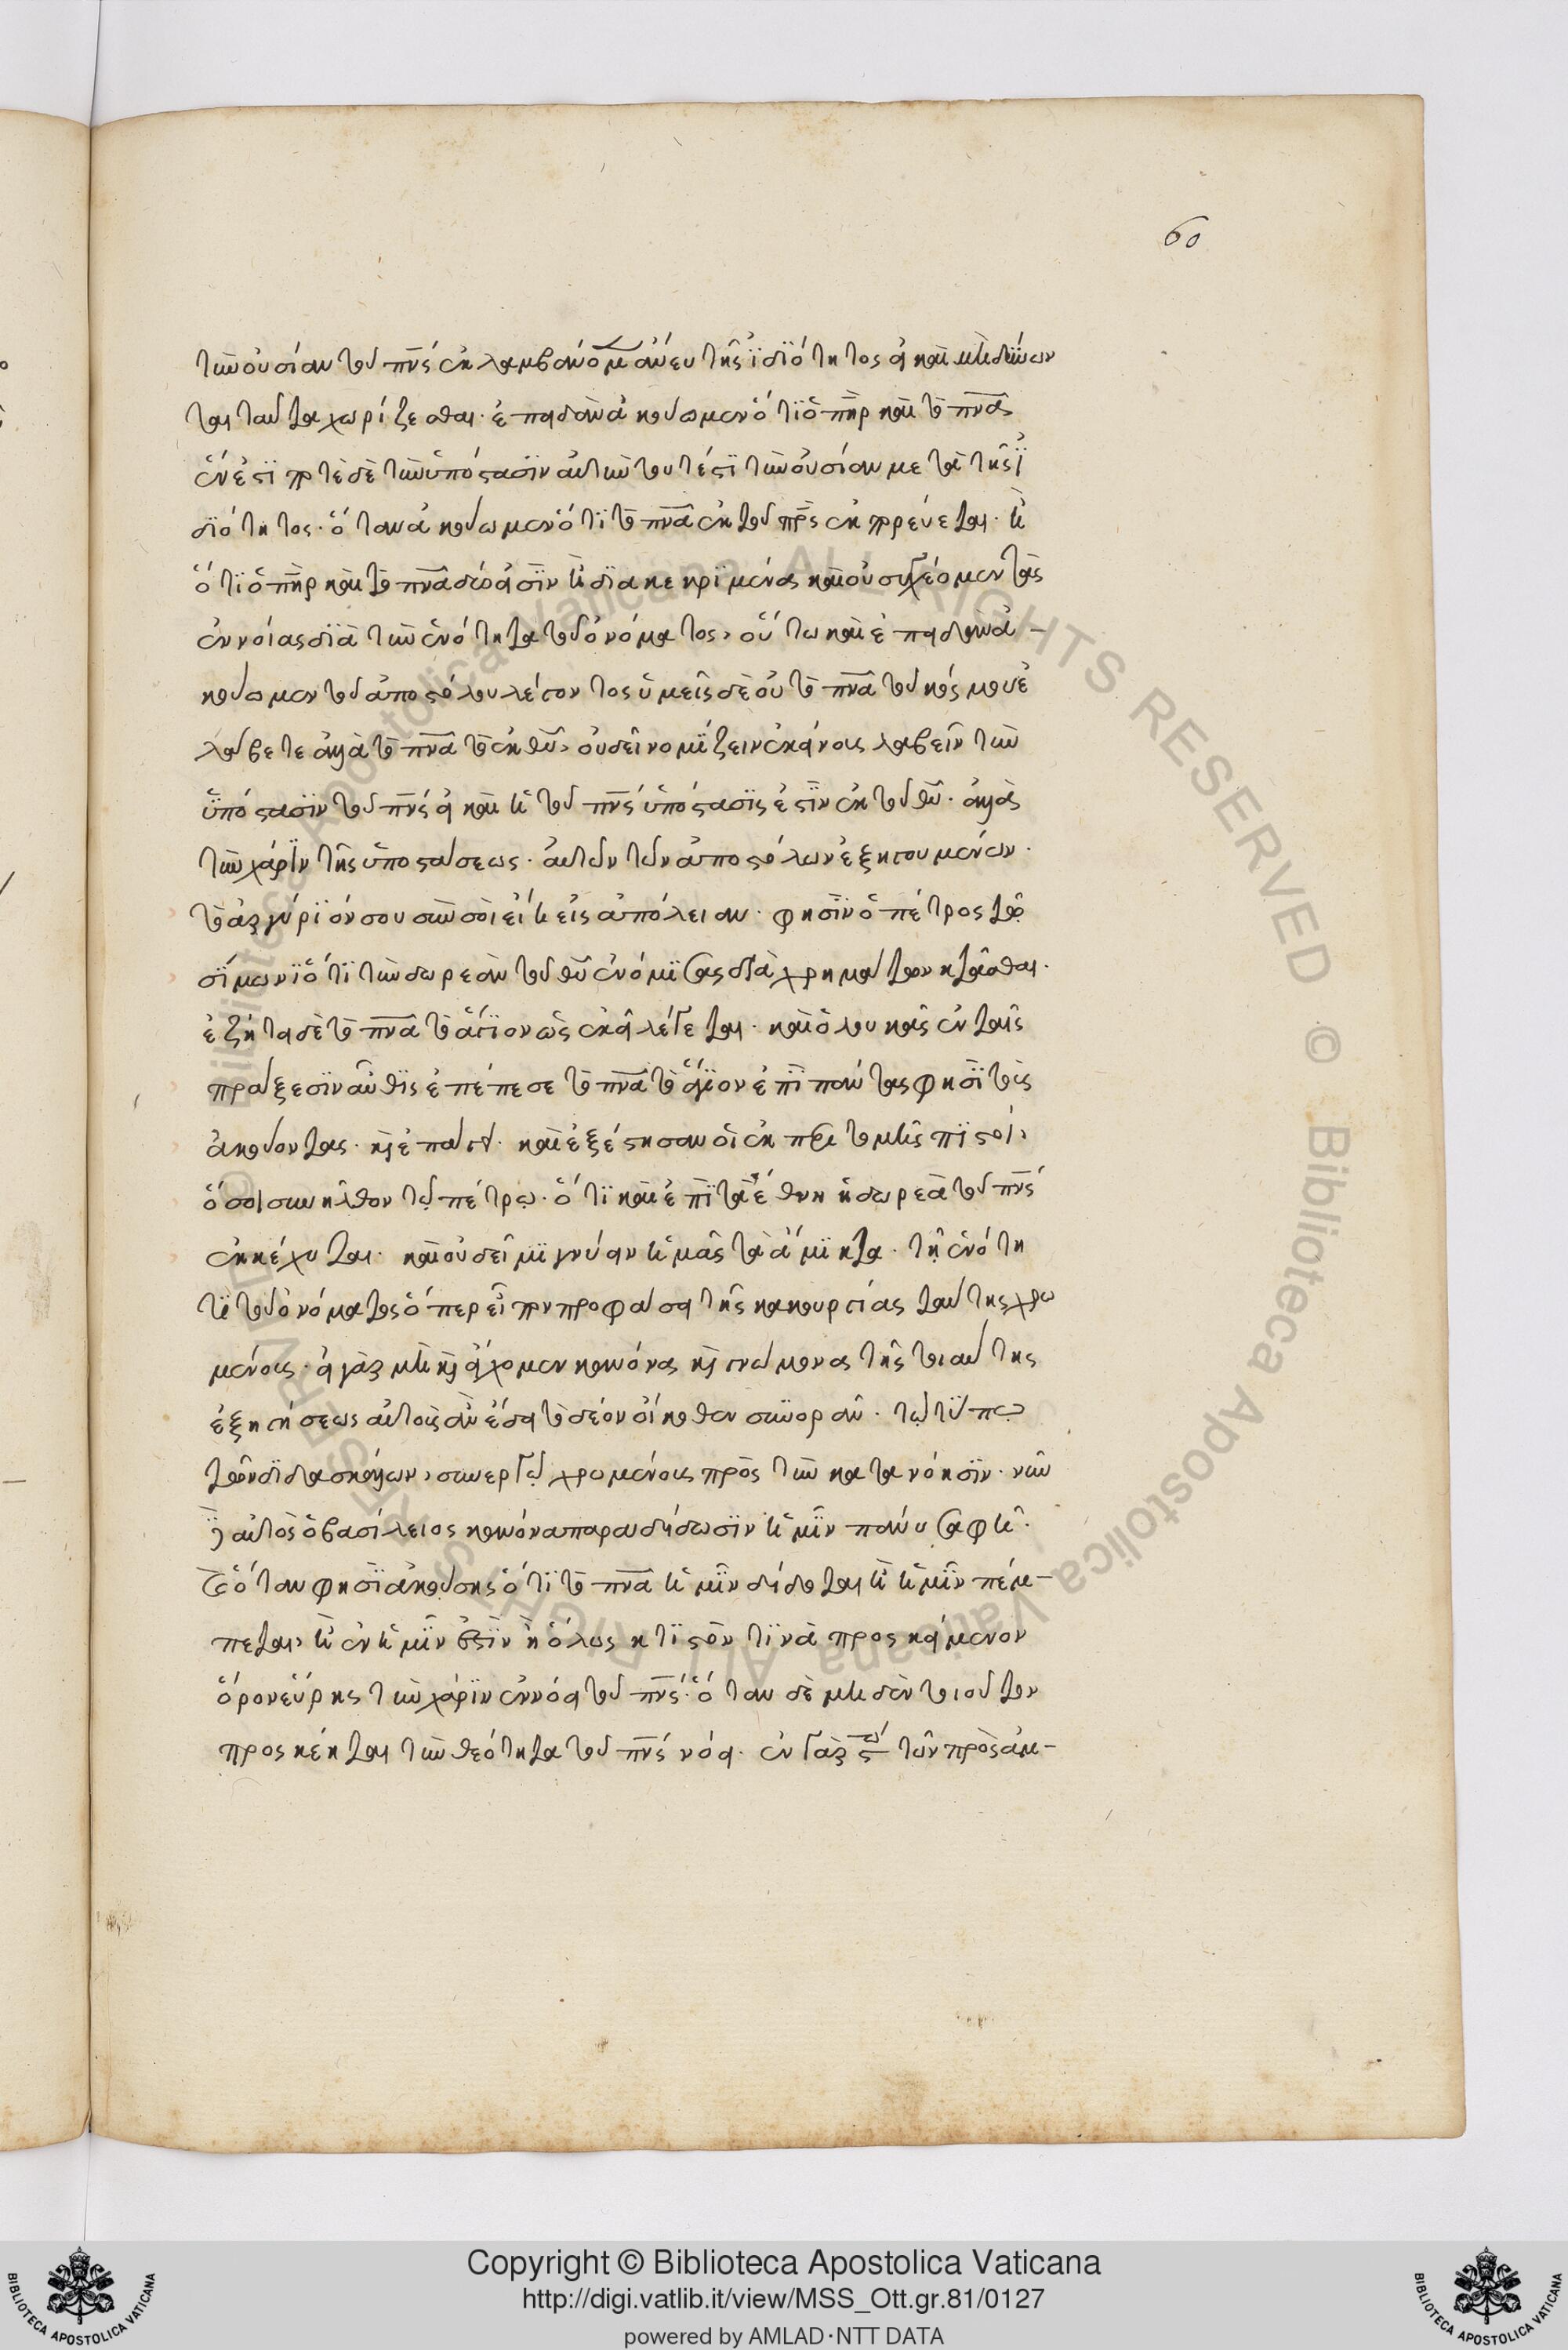 60
τὴν οὐσίαν τοῦ πνς ἐκλαμβανομ ἄνευ τῆς ἰδιότητος εἰ καὶ μὴ δύναν
ται ταῦτα χωρίζεσθαι. ἐπειδὰν ἀκούωμεν ὅτι ὁ πηρ καὶ τὸ πνα
ἕν ἐστι τὴν δὲ ὑπόστασιν αὐτὴν τουτέστι τὴν οὐσίαν μετὰ τῆς ἰ
διότητος. ὅταν ἀκούωμεν ὅτι τὸ πνα ἐκ τοῦ πρς ἐκπορεύεται. ἢ
ὅτι ὁ πηρ καὶ τὸ πνα δύο εἰσὶν ἢ διακεκριμένα καὶ οὐ συγχέομεν τὰς
ἐννοίας διὰ τὴν ἑνότητα τοῦ ὀνόματος, οὕτω καὶ ἐπειδὰν ἀ-
κούωμεν τοῦ ἀποστόλου λέγοντος ὑμεῖς δὲ οὐ τὸ πνα τοῦ κόσμου ἐ
λάβετε ἀλλὰ τὸ πνα τὸ ἐκ θυ, οὐ δεῖ νομίζειν ἐκείνους λαβεῖν τὴν
ὑπόστασιν τοῦ πνς εἰ καὶ ἡ τοῦ πνς ὑπόστασις ἐστὶν ἐκ τοῦ θυ. ἀλλὰ
τὴν χάριν τῆς ὑποστάσεως. αὐτῶν τῶν ἀποστόλων ἐξηγουμένων.
τὸ ἀργύριόν σου σὺν σοὶ εἴη εἰς ἀπόλειαν. φησὶν ὁ πέτρος τῷ
σίμωνι ὅτι τὴν δωρεὰν τοῦ θυ ἐνόμισας διὰ χρημάτων κτᾶσθαι.
ἐζήτει δὲ τὸ πνα τὸ ἅγιον ὡς ἐκεῖ λέγεται. καὶ ὁ λουκᾶς ἐν ταῖς
πράξεσιν αὖθις ἐπέπεσε τὸ πνα τὸ ἅγιον ἐπὶ πάντας φησὶ τοὺς
ἀκούοντας. καὶ ἐπάγει. καὶ ἐξέστησαν οἱ ἐκ περιτομῆς πιστοί,
ὅσοι συνῆλθον τῷ πέτρῳ. ὅτι καὶ ἐπὶ τὰ ἔθνη ἡ δωρεὰ τοῦ πνς
ἐκκέχυται. καὶ οὐ δεῖ μιγνύειν ἡμᾶς τὰ ἄμικτα. τῇ ἑνότη
τι τοῦ ὀνόματος ὅπερ εἶπον προφάσει τῆς κακουργίας ταύτης χρω
μένους. εἰ γὰρ μὴ καὶ εἴχομεν κανόνας καὶ γνώμονας τῆς τοιαύτης
ἐξηγήσεως αὐτοὺς ἂν ἔδει τὸ δέον οἴκοθεν συνορᾶν. τῷ τύπῳ
τῶν διδασκάλων, συνεργῷ χρωμένους πρὸς τὴν κατανόησιν. νῦν
δὲ αὐτὸς ὁ βασίλειος κανόνα παραδίδωσιν ἡμῖν πάνυ σαφῆ.
ὅταν φησὶ ἀκούσῃς ὅτι τὸ πνα ἡμῖν δίδοται ἢ ἡμῖν πέμ-
πεται, ἢ ἐν ἡμῖν ἐστὶν ἢ ὅλως κτιστόν τινὰ προσκείμενον
ὅρον εὕρῃς τὴν χάριν ἐννόει τοῦ πνς. ὅταν δὲ μηδὲν τοιοῦτον
προσκέηται τὴν θεότητα τοῦ πνς νόει. ἐν γὰρ τῶν πρὸς ἀμ-
Copyright © Biblioteca Apostolica Vaticana
http://digi.vatlib.it/view/MSS_Ott.gr.81/0127
powered by AMLAD·NTT DATA
BIBLIOTECA APOSTOLICA VATICANA
BIBLIOTECA APOSTOLICA VATICANA
© Biblioteca Apostolica Vaticana ALL RIGHTS RESERVED © Biblioteca Apostolica Vaticana ALL RIGHTS RESERVED